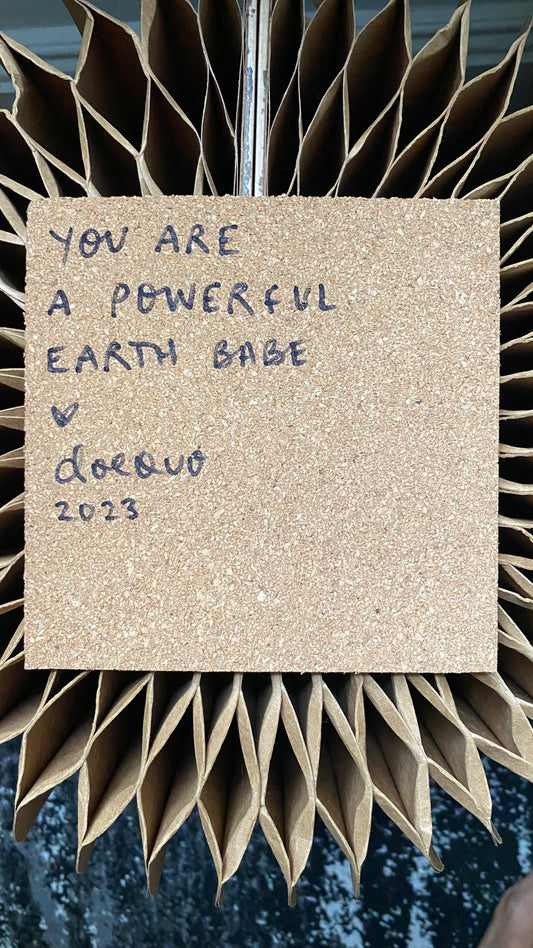 YOU ARE
A POWERFUL
EARTH BABE
♥
doequo
2023